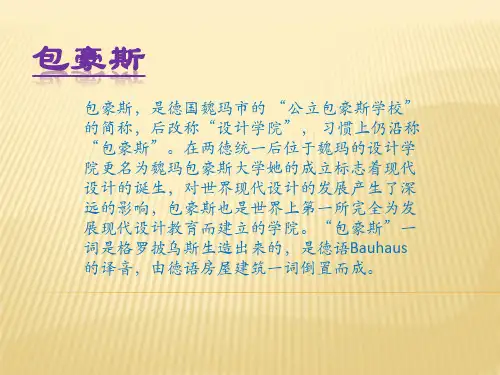 包豪斯
包豪斯，是德国魏玛市的 “公立包豪斯学校”
的简称，后改称“设计学院”， 习惯上仍沿称
“包豪斯”。在两德统一后位于魏玛的设计学
院更名为魏玛包豪斯大学她的成立标志着现代
设计的诞生，对世界现代设计的发展产生了深
远的影响，包豪斯也是世界上第一所完全为发
展现代设计教育而建立的学院。“包豪斯”一
词是格罗披乌斯生造出来的，是德语Bauhaus
的译音，由德语房屋建筑一词倒置而成。